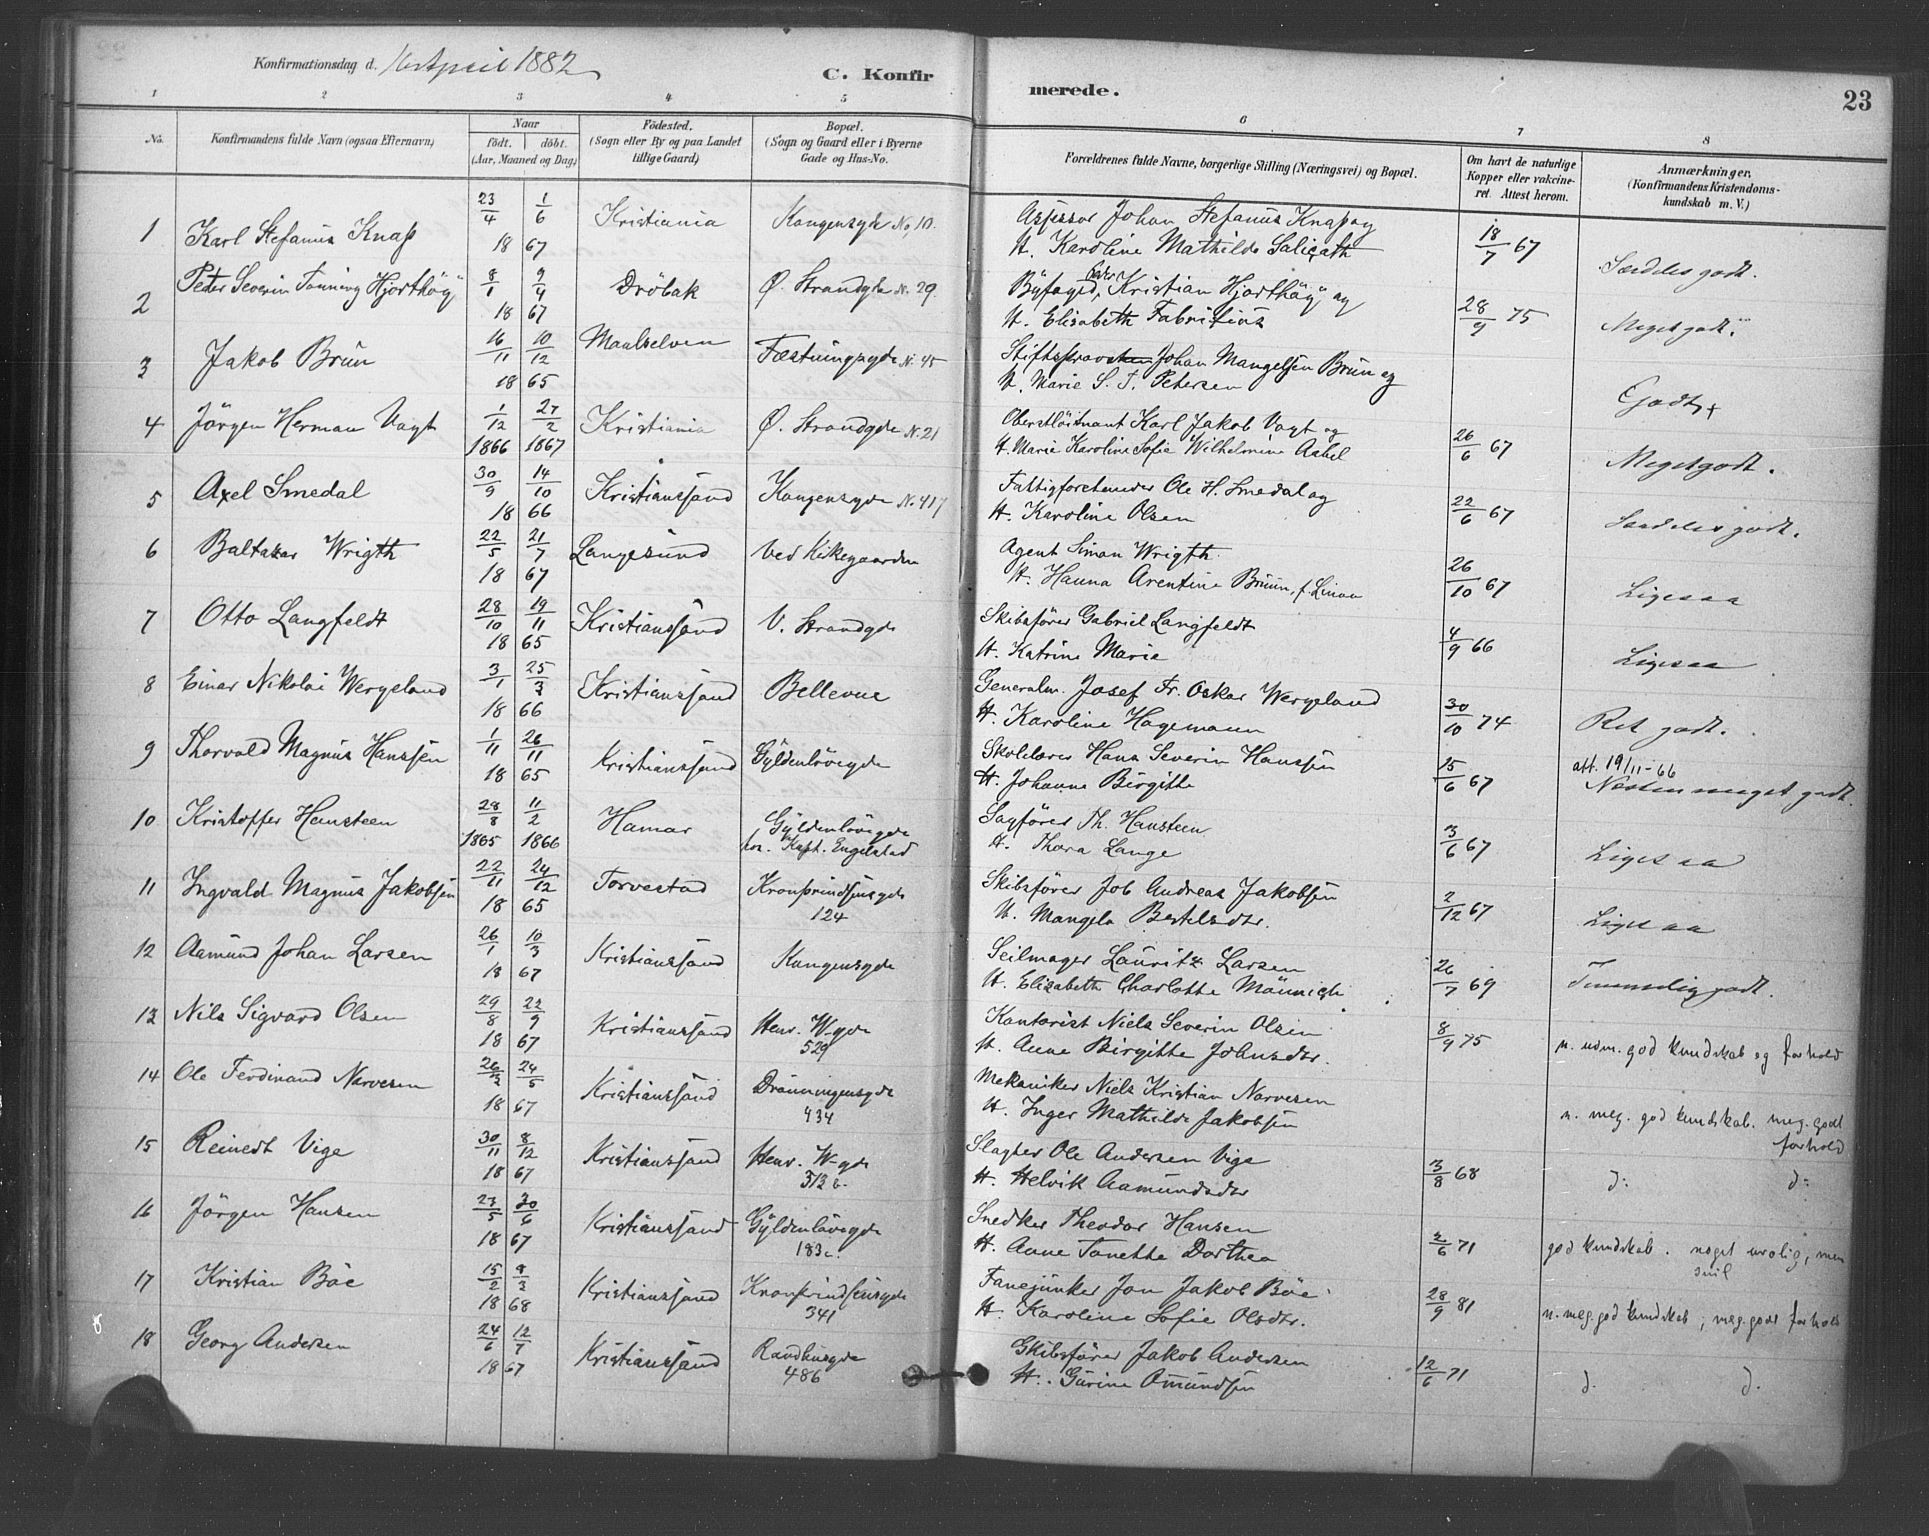 Konfirmationsdag d. 16 April 1882
C. Konfir
merede.
23
1 2 3 4 5 6 7 8
No. Konfirmandens fulde Navn (ogsaa Efternavn) Naar født. døbt. (Aar, Maaned og Dag) Fødested. (Sogn eller By og paa Landet tillige Gaard) Bopæl. (Sogn og Gaard eller i Byerne Gade og Hus-No. Forældrenes fulde Navne, borgerlige Stilling (Næringsvei) og Bopæl. Om havt de naturlige Kopper eller vakcineret. Attest herom. Anmærkninger. (Konfirmandens Kristendomskundskab m. V.)
1 Karl Stefanus Knap 23/4 1/6 18 67 Kristiania Kongensgde No 10. Assessor Johan Stefanus Knap og
H. Karoline Mathilde Salicath 18/7 67 Særdeles godt.
2 Peter Severin Tönning Hjorthöy 8/1 9/4 18 67 Dröbak Ø. Strandgde N. 29. Byfoged Kristian Hjorthöy og
H. Elisabeth Fabritius 28/9 75 Meget godt.
3 Jakob Brün 16/11 10/12 18 65 Maalselven Fæstningsgde N. 45 Stiftsprovsten Johan Mangelsen Brün og
H. Marie S. T. Petersen Godt
4 Jörgen Herman Vogt 1/12 1866 27/2 1867 Kristiania Ø. Strandgde N. 21 Oberstlöitnant Karl Jakob Vogt og
H. Marie Karoline Sofie Wilhelmine Aabel 26/6 67 Meget godt.
5 Axel Smedal 30/9 14/10 18 66 Kristianssand Kongensgde N. 417 Fattigforstander Ole H. Smedal og
H. Karoline Olsen 22/6 67 Særdeles godt.
6 Baltazar Wrigth 22/5 21/7 18 67 Langesund Ved Kirkegaarden Agent Simon Wrigth
H. Hanna Arentine Bruun, f. 26/10 67 Ligesaa
7 Otto Langfeldt 28/10 19/11 18 65 Kristianssand V. Strandgde Skibsförer Gabriel Langfeldt
H. Katrine Marie 4/9 66 Ligesaa
8 Einar Nikolai Wergeland 3/1 25/3 18 66 Kristianssand Bellevue Generalm. Josef Fr. Oskar Wergeland
H. Karoline Hagemann 30/10 74 Ret godt.
9 Thorvald Magnus Hanssen 1/11 26/11 18 65 Kristianssand Gyldenlövegde Skolelærer Hans Severin Hanssen
H. Johanne Birgitte 15/6 67 att. 19/11-66
Næsten meget godt.
10 Kristoffer Hansteen 28/8 1865 11/2 1866 Hamar Gyldenlövegde
hos Kapt. Engelstad Sagförer Th. Hansteen
H. Thora Lange 3/6 67 Ligesaa
11 Ingvald Magnus Jakobsen 22/11 24/12 18 65 Torvestad Kronprindsensgde
124 Skibsförer Job Andreas Jakobsen
H. Mangela Bertelsdtr. 2/12 67 Ligesaa
12 Aamund Johan Larsen 26/1 10/3 18 67 Kristianssand Kongensgde Seilmager Lauritz Larsen
H. Elizabeth Charlotte Männich 26/7 69 Temmelig godt.
13 Nils Sigvard Olsen 29/8 22/9 18 67 Kristianssand Henr. W-gde
529 Kontorist Niels Severin Olsen
H. Anne Birgitte Johnsdtr. 8/9 75 n. udm. god kundskab og forhold
14 Ole Ferdinand Narvesen 24/5 18 67 Kristianssand Dronningensgde
434 Mekaniker Niels Kristian Narvesen
H. Inger Mathilde Jakobsen n. meg. god kundskab. meg. godt
forhold
15 Reinert Vige 30/11 8/12 18 67 Kristianssand Henr. W-gde
313 b. Slagter Ole Andersen Vige
H. Helvik Aamundsdtr 3/8 68 d: d:
16 Jörgen Hansen 23/5 30/6 18 67 Kristianssand Gyldenlövegde
183c. Snedker Theodor Hansen
H. Anne Tonette Dorthea 2/6 71 god kundskab. noget urolig, men
snil
17 Kristian Böe 15/2 8/3 18 68 Kristianssand Kronprindsensgde
341 Fanejunker Jon Jakob Böe
H. Karoline Sofie Olsdtr. 28/9 81 n. meg. god kundskab; meg. godt forhold
18 Georg Andersen 24/6 12/7 18 67 Kristianssand Raadhusgde
486 Skibsförer Jakob Andersen
H. Gurine Omundsen 12/6 71 d. d.